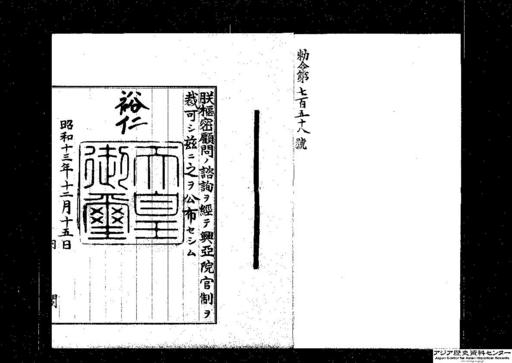 勅令第七百五十八號
朕樞密顧問ノ諮詢ヲ經テ興亞院官制ヲ
裁可シ茲ニ之ヲ公布セシム
裕仁
天皇御璽
昭和十三年十二月十五日
アジア歴史資料センター
Japan Center for Asian Historical Records